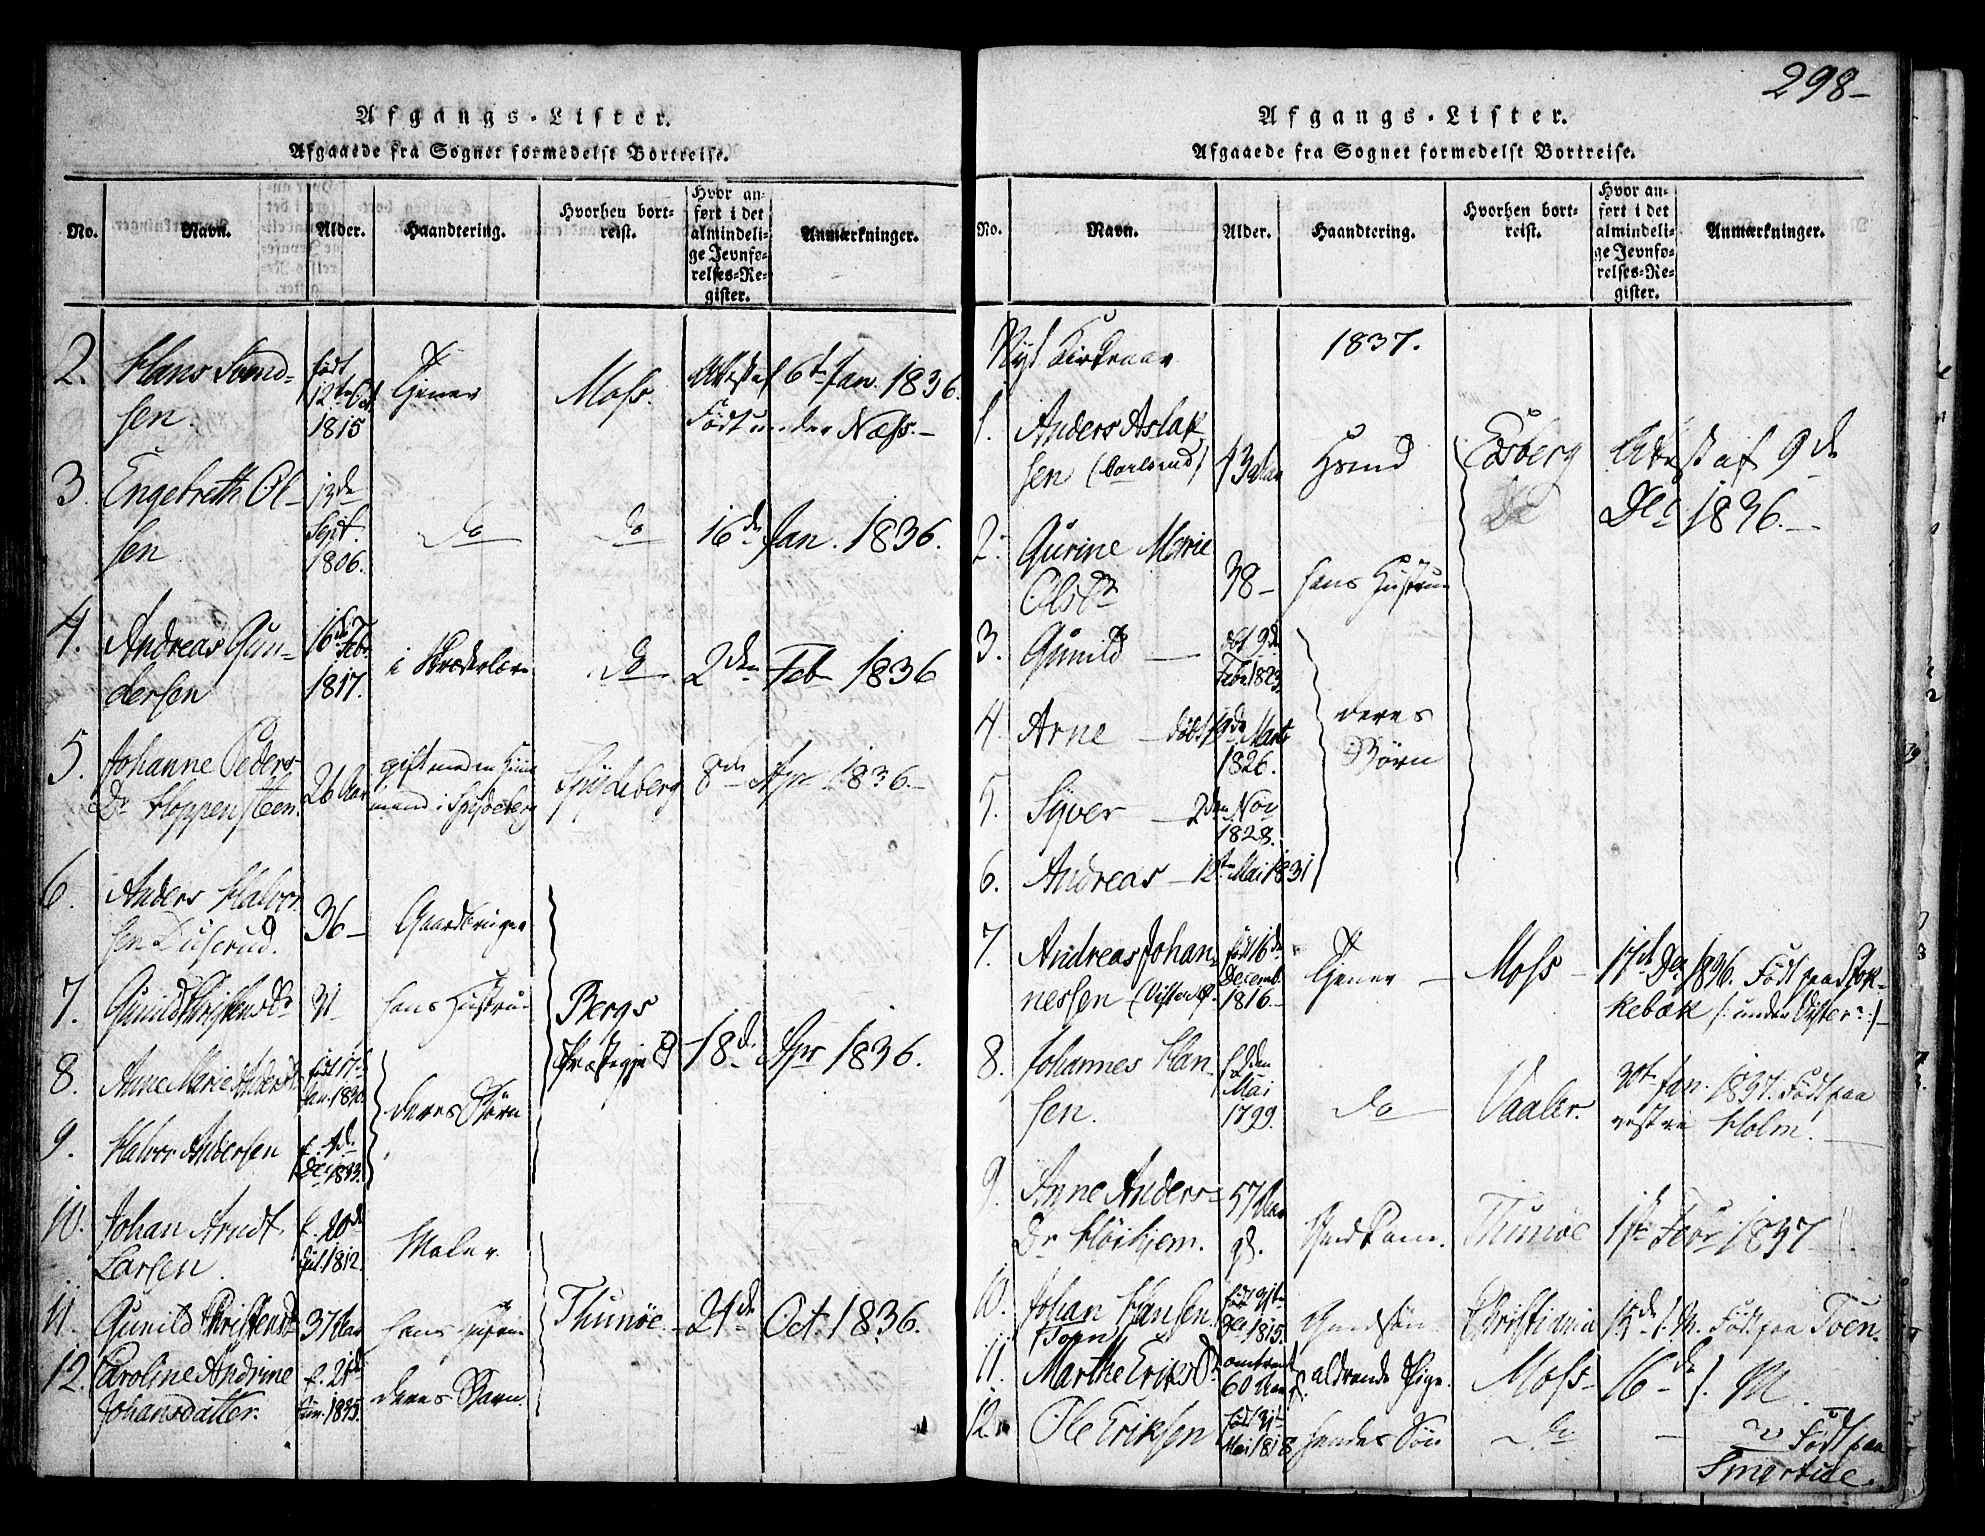 Afgangs-Lister.
Afgaaede fra Sognet formedelst Bortreise.
No.
Navn.
Alder.
Haandtering.
Hvorhen bort-
reist.
Hvor an-
ført i det
almindeli-
ge Jevnfø-
relses-Re-
gister.
Anmærkninger.
2. Hans
sen.
født
12te Oct
1815
Tjener
Moss.
Attest af 6te Jan. 1836.
Født under Næss.-
3. Engebreth Ol-
sen
13de
Sept.
1806.
do
do
16de Jan. 1836.
4. Andreas Gun-
dersen
16de Febr.
1817.
i
do
2den Feb 1836
5. Johanne Peders-
Dr Hoppensteen.
26 Aar
gift med en
mand i Spydeberg
Spydeberg
8de Apr 1836.-
6. Anders Halvor-
sen Duserud.
36-
Gaardbruger
7. Gunild Christensdr
31
hans Hustrue
Bergs
Præstegjeld
18de Apr 1836.
8. Anne Marie Andersd
født 17de
Jan. 1830
deres Børn
9. Halvor Andersen
f. 4de
Dec 1833.
10. Johan Arndt
Larsen
f. 20de
Jul. 1812.
Maler
11. Gunild Christensd
37 Aar
hans
Thunøe.
21de Oct. 1836.
12. Caroline Andrine
Johansdatter.
f. 21de
Jun. 1835.
deres Barn.
298-
Afgangs-Lister.
Afgaaede fra Sognet formedelst Bortreise.
No.
Navn.
Alder.
Haandtering.
Hvorhen bort-
reist.
Hvor an-
ført i det
almindeli-
ge Jevnfø-
relses-Re-
gister.
Anmærkninger.
Nyt Kirkeaar
1837.
1. Anders Aslak
sen
43 Aar
Hsmd
Edsberg
Attest af 9de
Dec 1836.-
2. Gurine Marie
Olsdr
38-
hans Hustrue
3. Gunild -
døbt 9de
Febr 1823.
4. Arne - døbt 19de Marts
1826.
deres
Børn
5. Syver - 2den Nov
1828.
6. Andreas - 12te Mai 1831
7. Andreas Johan-
nessen
født 16de
Decemb.
1816.-
Tjener -
Moss -
17de Dec 1836. Født paa Stok-
kebæk /: under Vister :/-
8. Johannes Han-
sen.
f. 2den
Mai
1799.
do
Vaaler.
30te Jan. 1837. Født paa
vestre Holm.-
9. Anne Anders-
Dr Høihjem.
57 Aar
gl.
Thunøe
1ste Febr 1837
10. Johan Hansen
(Toen)
født 31te
Dec 1815.
Christiania
15de s. M. Født paa Toen.
11. Marthe Eriksdr
omtrent
60 Aar
aldrende Pige.
Moss-
16de s. M.
12. Ole Eriksen
født 31te
Mai 1818
hendes Søn
do
-
Født paa
Smertule.